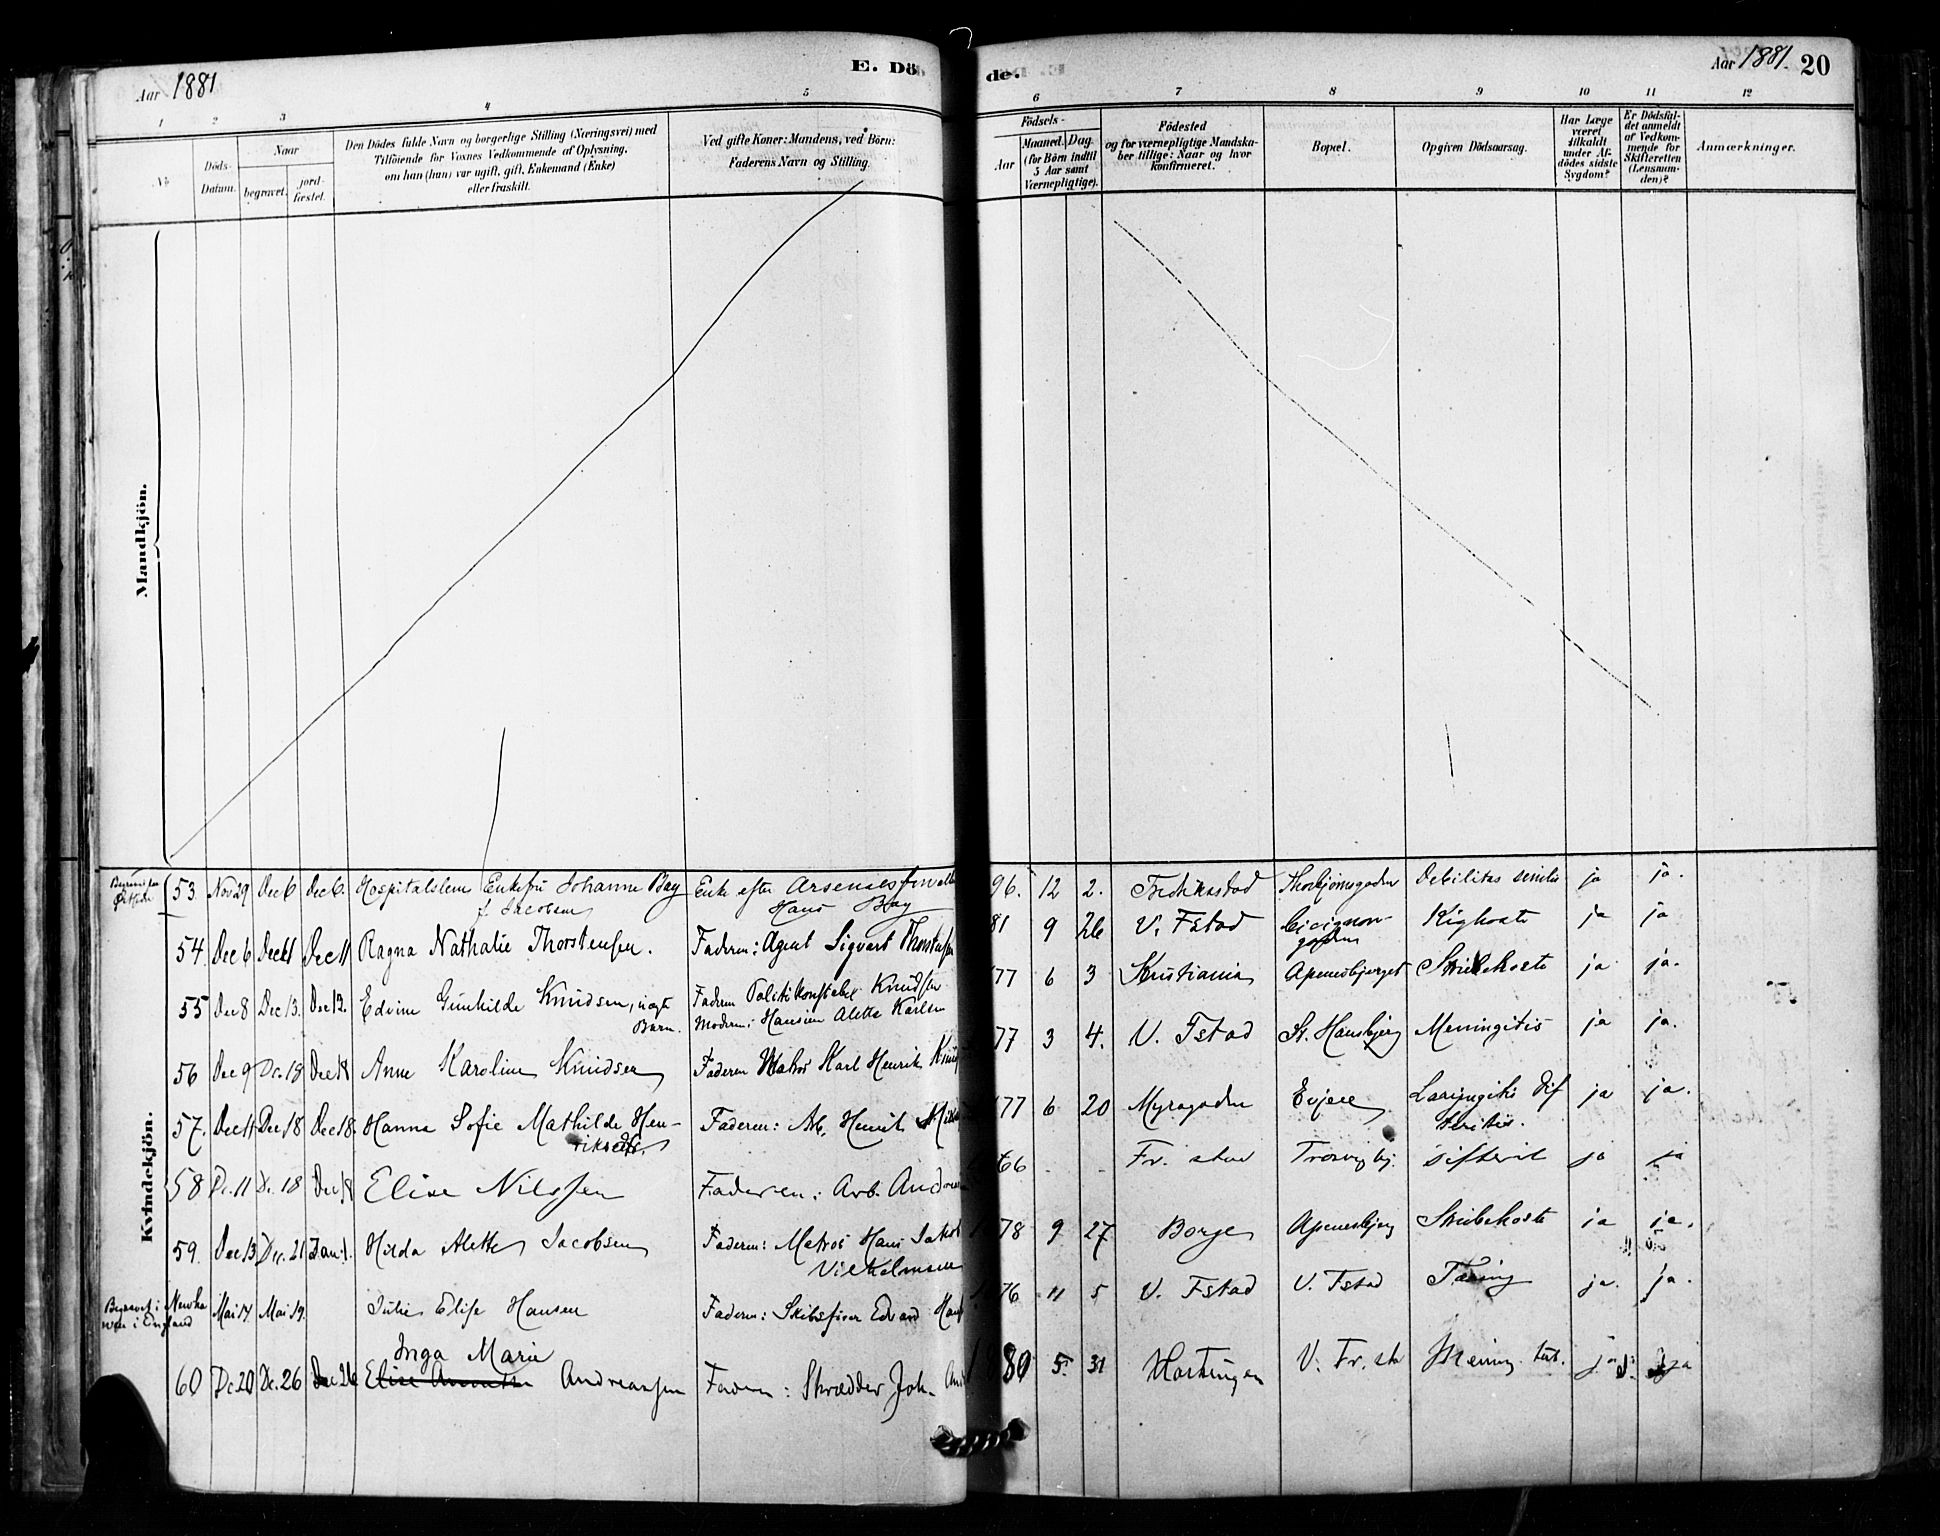 Aar 1881
E. Dö
de.
Aar 1881. 20
1 2 3 4 5 6 7 8 9 10 11 12
No
Döds-
Datum.
Naar
begravet.
jord-
fæstet.
Den Dödes fulde Navn og borgerlige Stilling (Næringsvei) med
Tilföiende for Voxnes Vedkommende af Oplysning,
om han (hun) var ugift, gift, Enkemand (Enke)
eller fraskilt.
Ved gifte Koner: Mandens, ved Börn:
Faderens Navn og Stilling.
Födsels-
Aar
Maaned. Dag.
(for Börn indtil
5 Aar samt
Værnepligtige).
Födested
og for værnepligtige Mandska-
ber tillige: Naar og hvor
konfirmeret.
Bopæl.
Opgiven Dödsaarsag.
Har Læge
været
tilkaldt
under Af-
dödes sidste
Sygdom?
Er Dödsfal-
det anmeldt
af Vedkom-
mende for
Skifteretten
(Lensman-
den)?
Anmærkninger.
Mandkjön.
Kvindekjön.
53 Nov 29 Dec 6 Dec 6. Hospitalslem Enkefru Johanne Bay Enke efter 96. 12 2. Fredrikstad Debilitas senilis ja ja.
f. Jacobsen Hans Bay
54 Dec 6 Dec 11 Dec 11 Ragna Nathalie Thorstensen. Faderen: Agent Sigvart Thorstensen 81 9 26 V. Fstad Kighoste ja ja
55 Dec 8 Dec 13. Dec 13. Edvine Gunhilde Knudsen, uægte Faderen Politikonstabel Knudsen 77 6 3 Kristiania Apenesbjerget Strubehoste ja ja.
Barn. Moderen: Hansine Alette Karlsen
56 Dec 9 Dc. 18 Dec 18 Anne Karoline Knudsen Faderen Matros Karl Henrik 77 3 4. V. Fstad St. Hansbjerg Meningitis ja ja.
57. Dec 11 Dec 18 Dec 18. Hanna Sofie Mathilde Hen- Faderen: Arb. Henrik 77 6 20 Myragaden Evjere Laryngitis dif ja ja.
riksen teritis.
58 Dc. 11 Dc. 18 Dec 18 Elise Nilssen Faderen: Arb. 66 Fr. stad Trosvigbj. difterit ja ja
59. Dec 13 Dec. 21 Jan. 1. Hilda Alette Jacobsen Faderen: Matros Hans Jakob 78 9 27 Borge Apenesbjerg Strubehoste ja ja.
Vilhelmsen
Begravet i Newha
ven i England
Mai 14 Mai 19. Julie Elise Hansen Faderen: Skibsfører Edvard Hans 76 11 5 V. Fstad V. Fstad Tæring ja. ja.
Inga Marie
60 Dc 20 Dc. 26 Dec 26 Elise Andreassen Faderen: Skrædder Joh. 80 5. 31 V. Fr. sta Mening. tub. ja ja